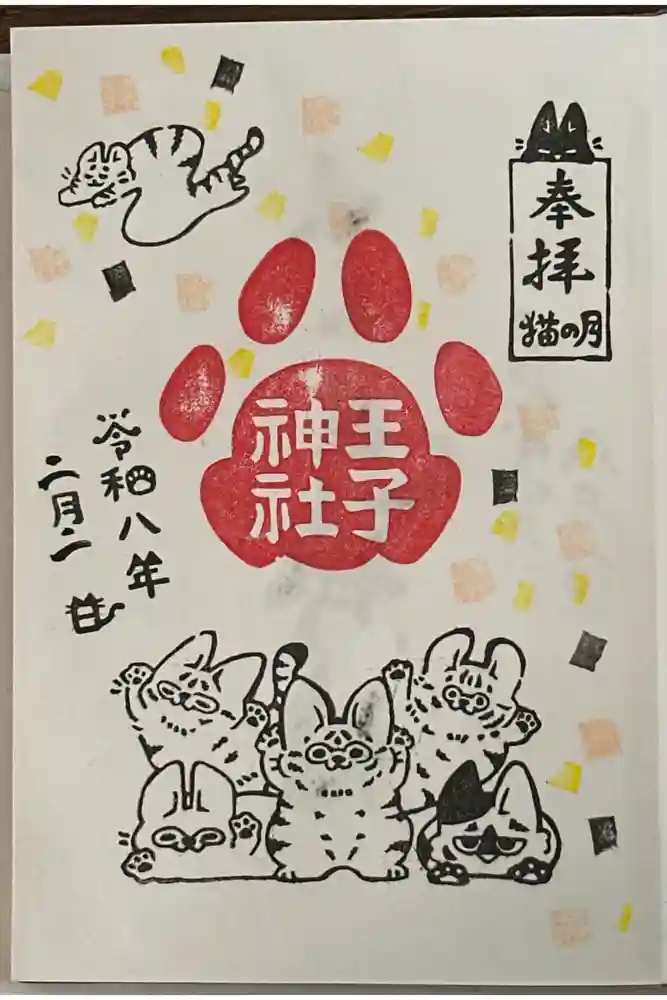 奉拝
猫の月
王子
神社
令和八年
二月二日